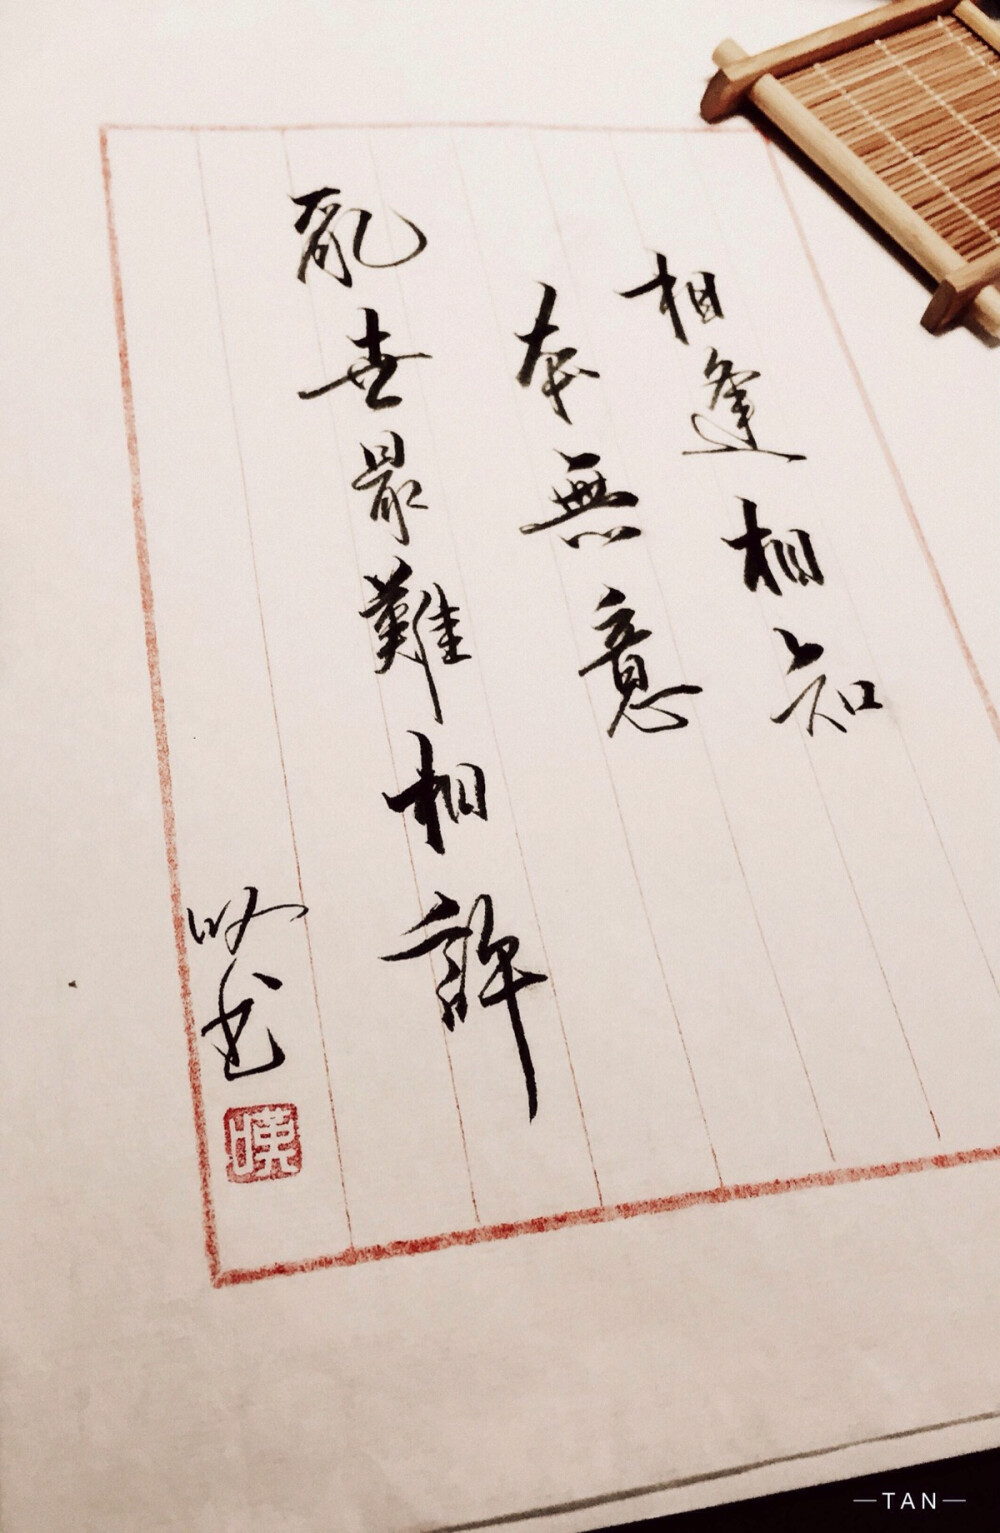 相逢相知
本無意
亂世最難相許
暵書
暵
—TAN—